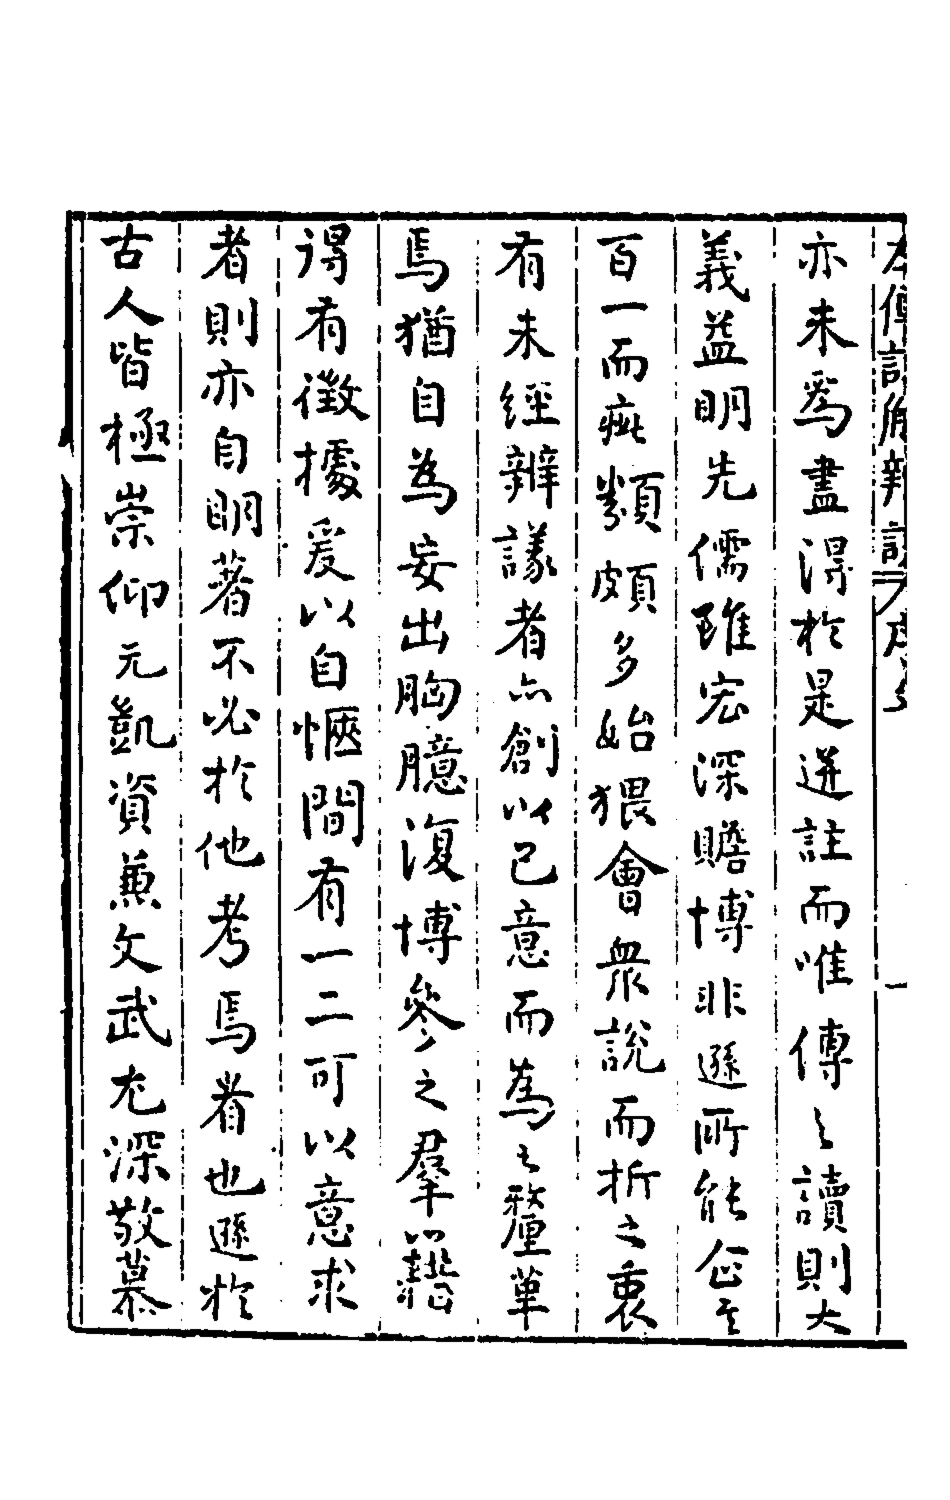 左傳註解辨誤
亦未為盡得於是迸註而唯傳之讀則大
義益明先儒雖宏深贍博非遜所能企至
百一而疵纇頗多始猥會衆說而折之衷
有未經辨議者亦創以己意而為之釐革
焉猶自為妄出胸臆復博參之羣籍
得有徵據爰以自愜間有一二可以意求
者則亦自明著不必於他考焉者也遜於
古人皆極崇仰元凱資兼文武尤深敬慕